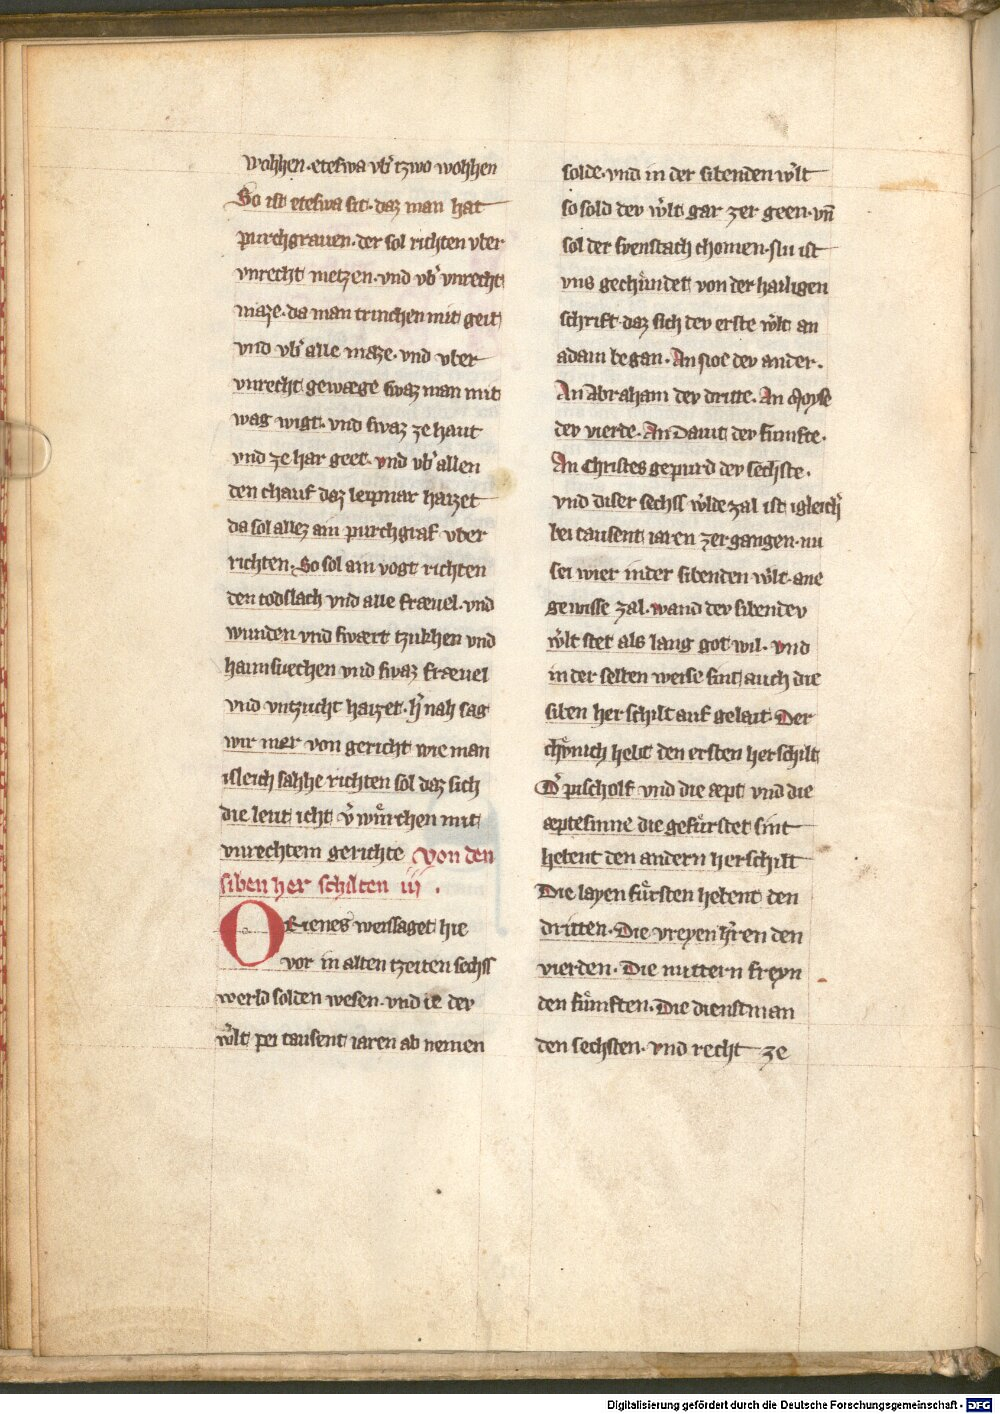 wohhen · etefwa vb̕ tzwo wohhen
So ist etefwa sit · daz man hat
purchgrauen · der sol richten vber
vnrecht metzen · vnd vb̕ vnrecht
maze · da man trinchen mit geit
vnd vb̕ alle maze · vnd vber
vnrecht gewæge swaz man mit
wag wigt · vnd swaz ze haut
vnd ze har geet · vnd vb̕ allen
den chauf daz leipnar haizet
da sol allez ain purchgraf vber
richten · So sol ain vogt richten
den todslach vnd alle fræuel · vnd
wunden vnd swært tzukhen vnd
haimsuechen vnd swaz fræuel
vnd vntzucht haizet · h̕ nah sag
wir mer von gericht wie man
isleich sahhe richten sol daz sich
die leut icht v̕ wuͤrchen mit
vnrechtem gerichte Von den
siben her schilten iij .
ORienes weissaget hie
vor in alten tzeiten sechss
werld solden wesen · vnd ie dev
w̕lt pei tausent iaren ab nemen
solde · vnd in der sibenden w̕lt
so sold dev w̕lt gar zer geen · vn̄
sol der svenstach chomen · Nu ist
vns gechuͤndet von der hailigen
schrift daz sich dev erste w̕lt an
adam began · An Noe dev ander ·
An Abraham dev dritte · An Moyse
dev vierde · An Dauit dev fumfte ·
An Christes gepurd dev sechste ·
vnd diser sechss w̕lde zal ist igleich̕
bei tausent iaren zergangen · nu
sei wier in der sibenden w̕lt · ane
gewisse zal · wand dev sibendev
w̕lt stet als lang got wil · vnd
in der selben weise sint auch die
siben her schilt auf gelait · Der
chuͤnich hebt den ersten her schilt
D̕ pischolf vnd die æpt vnd die
æptesinne die gefuͤrstet sint
hebent den andern herschilt
Die layen fuͤrsten hebent den
dritten · Die vreyen h̕ren den
vierden · Die mittern freyn
den fuͤmften · Die dienstman
den sechsten · vnd recht ze
Digitalisierung gefördert durch die Deutsche Forschungsgemeinschaft - DFG